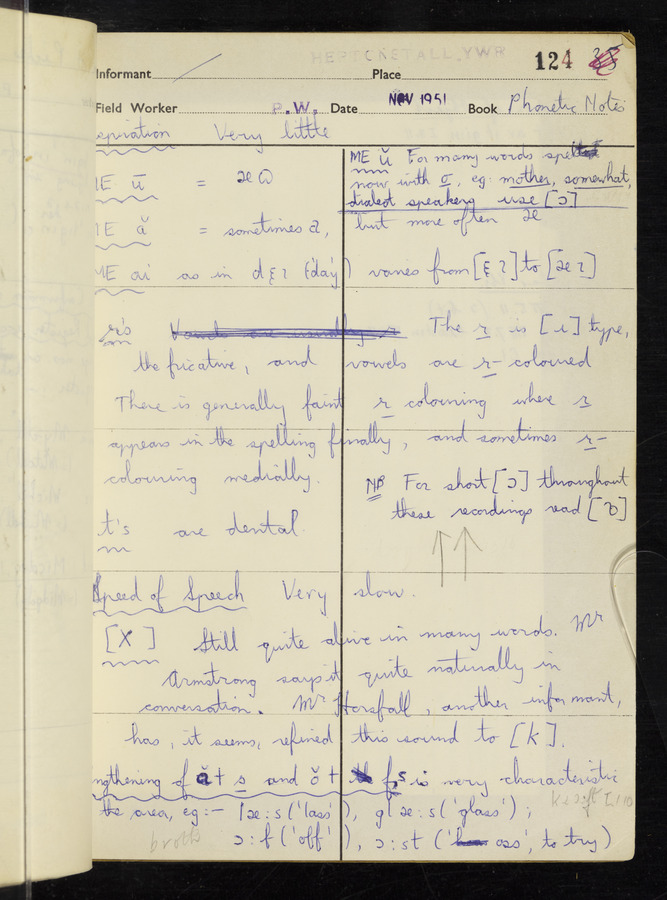 HEPTONSTALL, YWR
124
Informant Place
Field Worker P.W. Date NOV 1951 Book Phonetic Notes
spiration Very little
ME ŭ For many words spelt
now with o, eg: mother, somewhat,
dialect speakers use [ɔ]
but more often æ
ME ū =
ME ă = sometimes a,
ME ai as in dɛɪ (day) varies from [ɛɪ] to [æɪ]
r's Vowels are usually r The r is [ɹ] type,
the fricative, and vowels are r- coloured
There is generally faint r colouring where r
appears in the spelling finally, and sometimes r-
colouring medially.
NB For short [ɔ] throughout
these recordings read [ɒ]
t's are dental.
Speed of Speech Very slow.
[X] Still quite alive in many words. Mr
Armstrong says it quite naturally in
conversation. Mr Horsfall, another informant,
has, it seems, refined this sound to [k].
ngthening of ă + s and ŏ + f, s is very characteristic
the area, eg:- læ:s ('lass'), glæ:s ('glass');
broth ɔ:f ('off'), ɔ:st ('oss', to try)